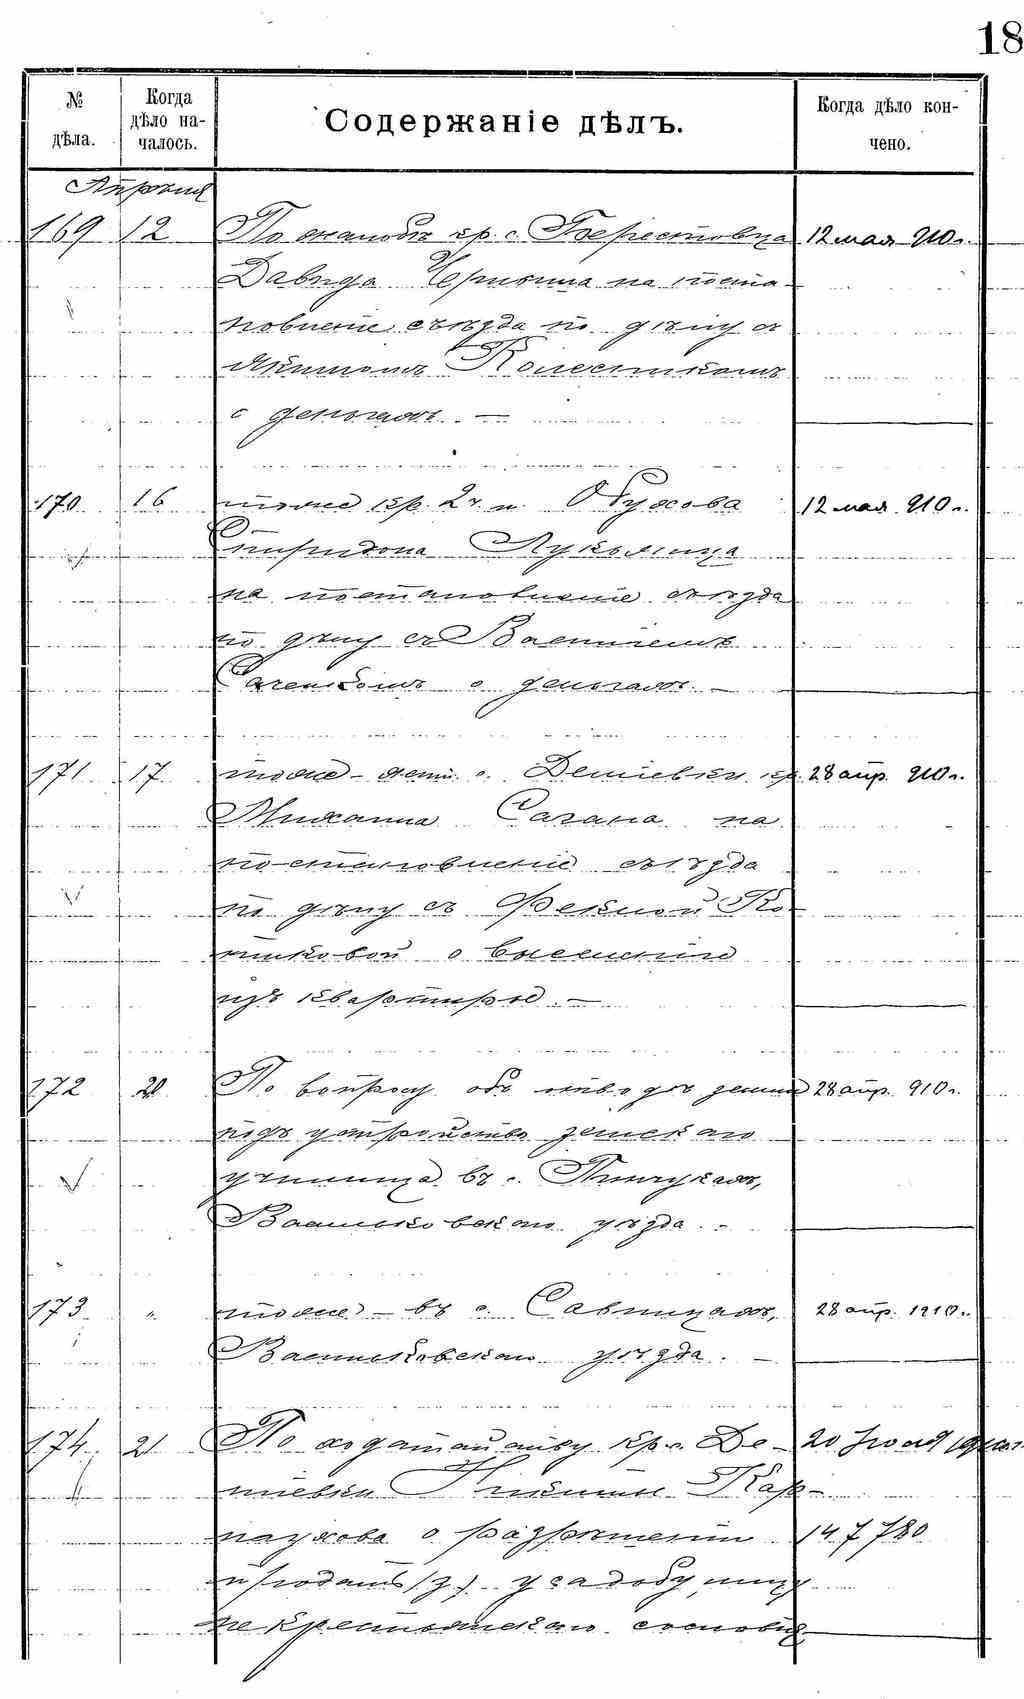 18
№ дѣла.
Когда дѣло на-
чалось.
Содержаніе дѣлъ.
Когда дѣло кон-
чено.
Апрѣля
169 12 По жалобѣ кр. с. Берестовца 12 мая 910 г.
Давида на поста-
новленіе съѣзда по дѣлу съ
Якимомъ Колесникомъ
о деньгахъ. —
170 16 тоже кр. 2 ч. м. Обухова 12 мая 910 г.
Спиридона Лукьянца
на постановленіе съѣзда
по дѣлу съ Василіемъ
о деньгахъ. —
171 17 тоже – жит. с. Деміевки кр. 28 апр. 910 г.
Михаила Сагана на
постановленіе съѣзда
по дѣлу съ Феклой Ко-
тиковой о выселеніи
изъ квартиры. —
172 20 По вопросу объ отводѣ земли 28 апр. 910 г.
подъ устройство земскаго
училища въ с. Пинчукахъ,
Васильковскаго уѣзда. –
173 „ тоже – въ с. Савинцахъ, 28 апр. 1910 г.
Васильковскаго уѣзда. –
174 21 По ходатайству кр. с. Де- 20 1910 г.
міевки Никиты Кар-
наухова о разрѣшеніи 147/780
продать (з.) усадобу лицу
не крестьянскаго сословія